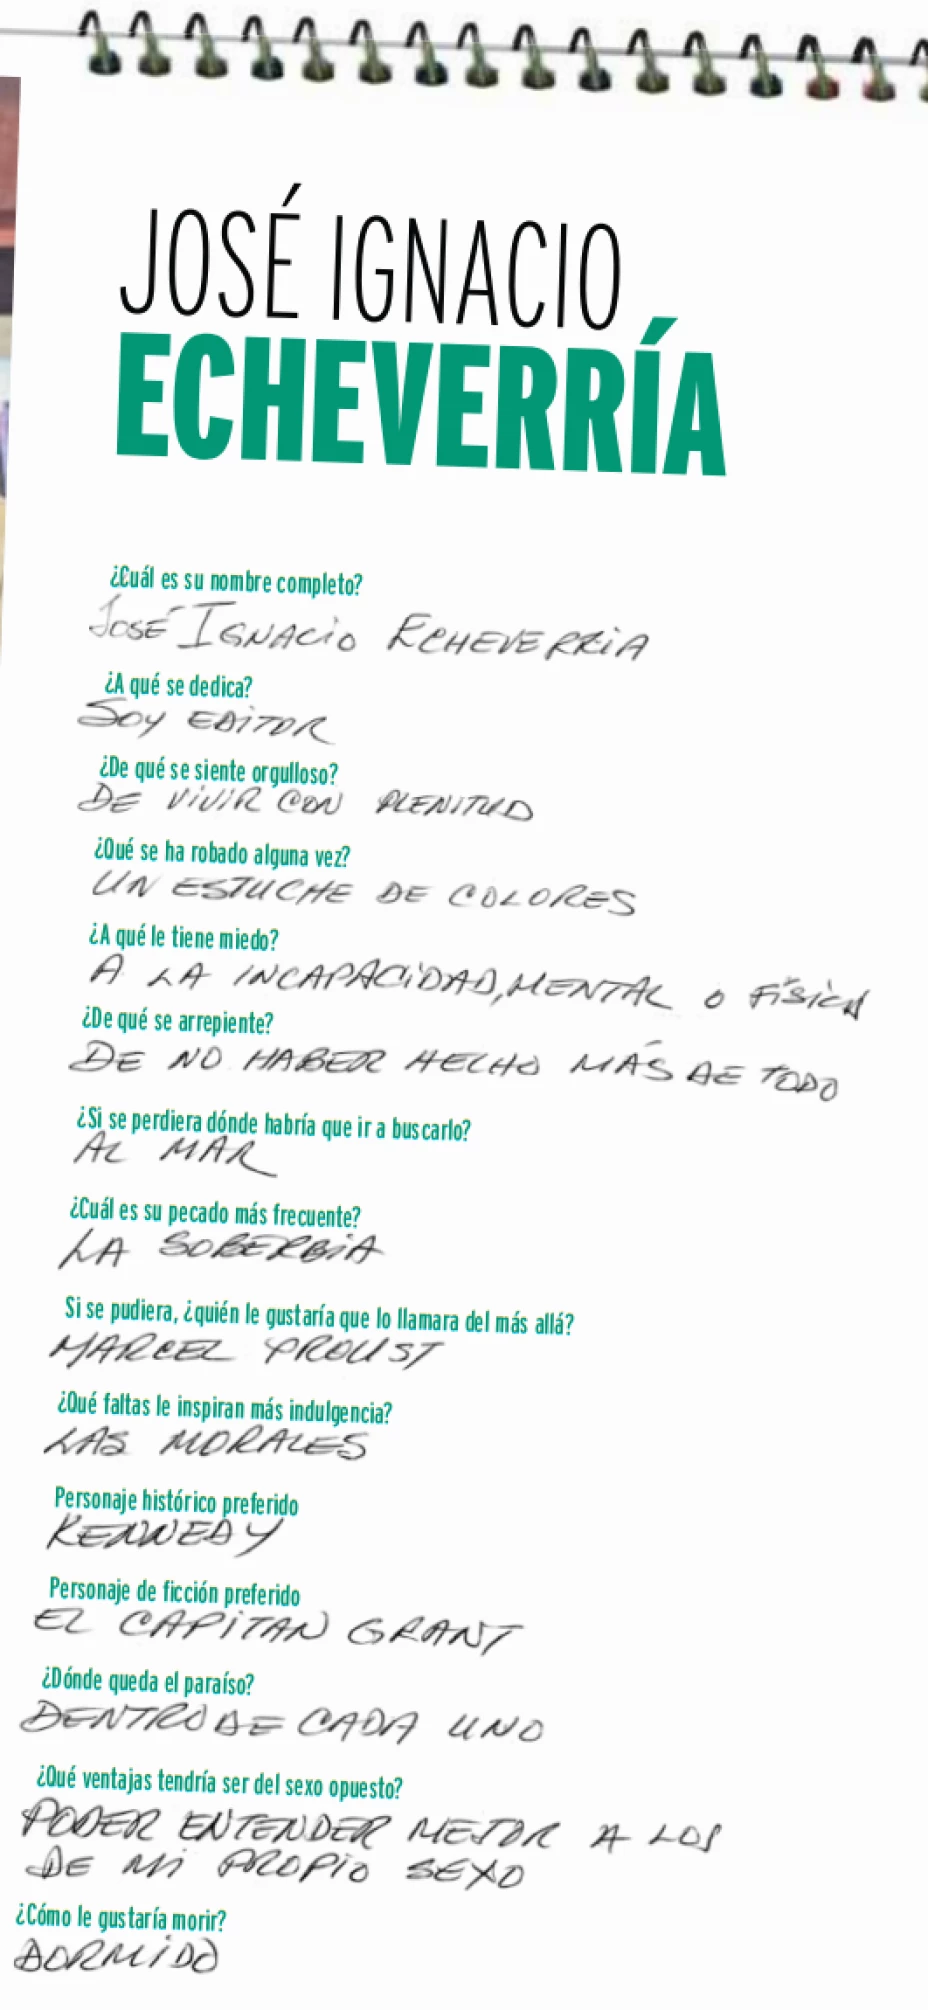 JOSÉ IGNACIO
ECHEVERRÍA
¿Cuál es su nombre completo?
JOSÉ IGNACIO ECHEVERRIA
¿A qué se dedica?
SOY EDITOR
¿De qué se siente orgulloso?
DE VIVIR CON PLENITUD
¿Qué se ha robado alguna vez?
UN ESTUCHE DE COLORES
¿A qué le tiene miedo?
A LA INCAPACIDAD, MENTAL O FÍSICA
¿De qué se arrepiente?
DE NO HABER HECHO MÁS DE TODO
¿Si se perdiera dónde habría que ir a buscarlo?
AL MAR
¿Cuál es su pecado más frecuente?
LA SOBERBIA
Si se pudiera, ¿quién le gustaría que lo llamara del más allá?
MARCEL PROUST
¿Qué faltas le inspiran más indulgencia?
LAS MORALES
Personaje histórico preferido
KENNEDY
Personaje de ficción preferido
EL CAPITAN GRANT
¿Dónde queda el paraíso?
DENTRO DE CADA UNO
¿Qué ventajas tendría ser del sexo opuesto?
PODER ENTENDER MEJOR A LOS
DE MI PROPIO SEXO
¿Cómo le gustaría morir?
DORMIDO